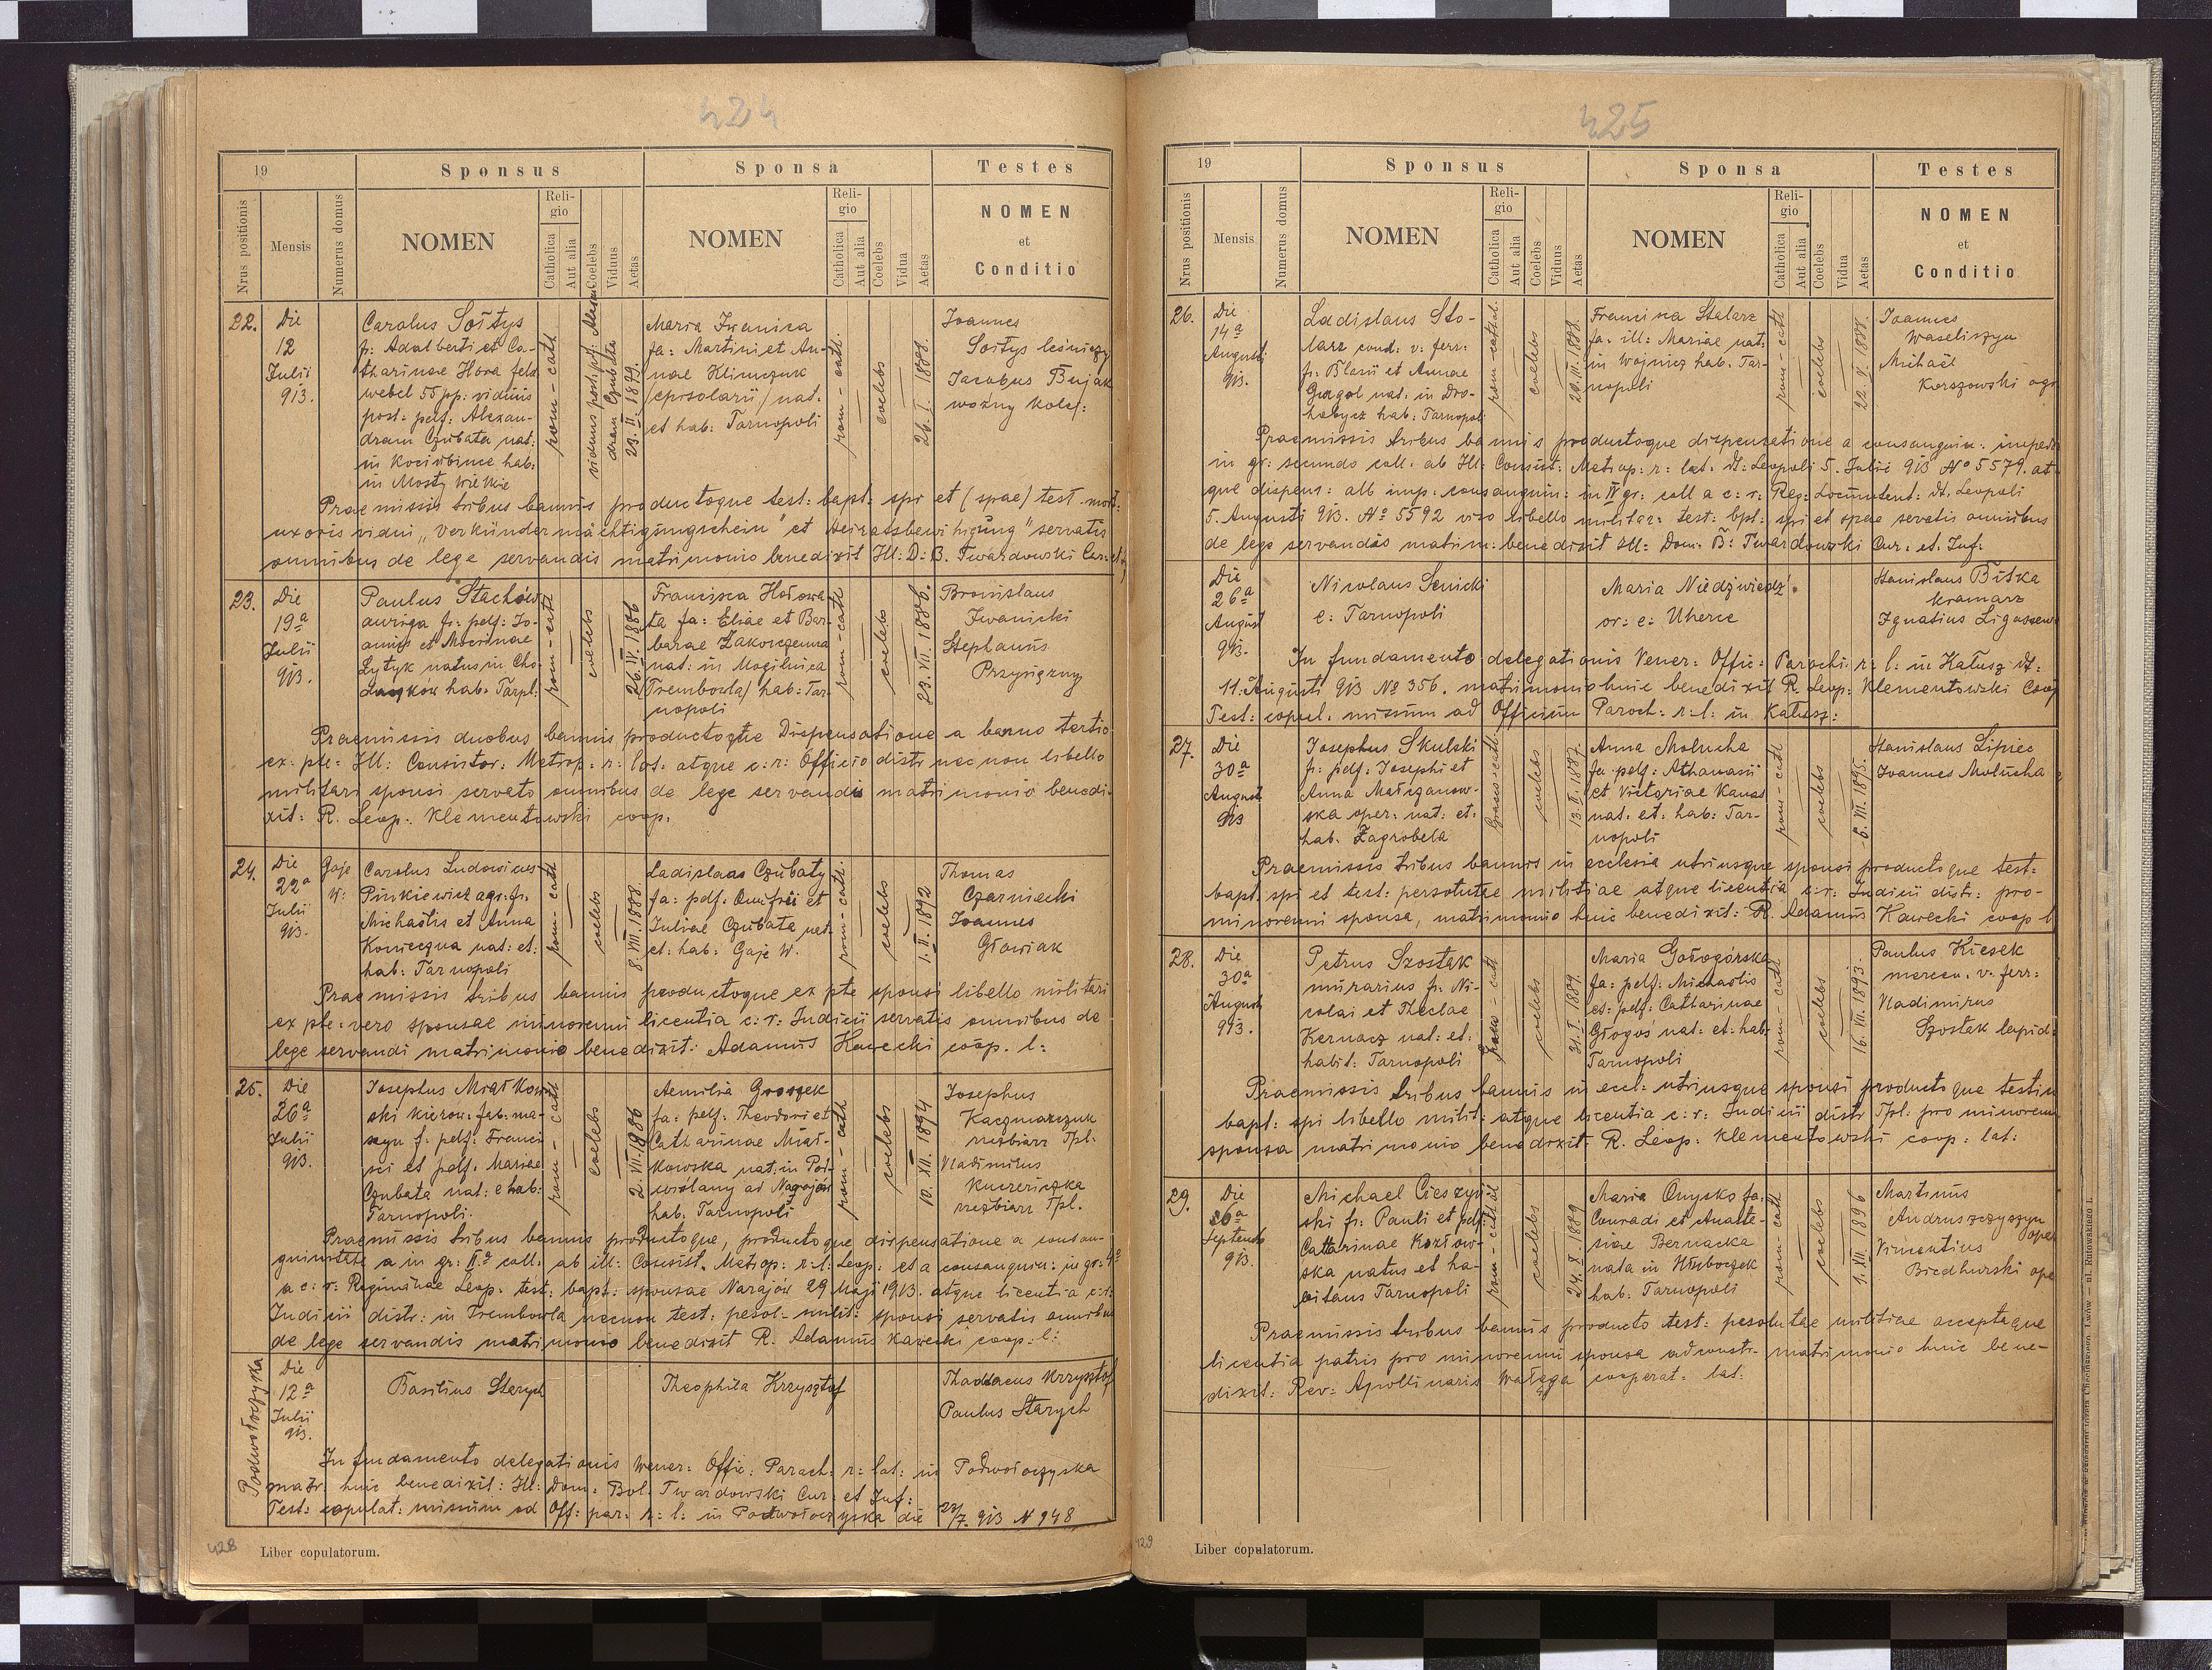 424
19
Sponsus
Sponsa
Testes
Nrus positionis
Mensis
Numerus domus
NOMEN
Religio
Catholica
Aut alia
Coelebs
Viduus
Aetas
NOMEN
Religio
Catholica
Aut alia
Coelebs
Vidua
Aetas
NOMEN
et
Conditio
22.
Die
12
Julii
913.
Carolus Sołtys
f: Adalberti et Ca-
tharinae Hora feld
webel 55 pp: viduus
post: pdf: Alexan-
dram Czubata nat:
in Kociubince hab:
in Mosty Wielkie
rom - cath
viduus post pdf: Alexan
dram Czubata
23. II. 1879.
Maria Iwanica
fa: Martini et An-
nae Klimczuk
/episolarii/ nat.
et hab: Tarnopoli
rom - cath.
coelebs
26. I. 1888.
Joannes
Sołtys leśniczy
Jacobus Bujak
woźny kolej:
Praemissis tribus bannis productoque test: bapt: spi et (spae) test. mort:
uxoris vidui „Verkündermächtigungschein" et Heiratsbewilligung" servatis
omnibus de lege servandis matrimonio benedixit Ill: D: B. Twardowski Cur: et
23.
Die
19a
Julii
913.
Paulus Stachów
auriga f: pdf: Jo-
annis et Marinae
Łytyk natus in Cho-
hab: Tarpl:
rom - cath
coelebs
26. IV. 1886
Francisca Hołowa
ta fa: Eliae et Bar-
barae Zakorczenna
nat: in Mogilnica
/Trembowla/ hab: Tar-
nopoli
rom - cath
coelebs
23. VII. 1886.
Bronislaus
Iwanicki
Stephanus
Przysiężny
Praemissis duobus bannis productoque Dispensatione a banno tertio
ex: pte: Ill: Consistor: Metrop: r: lat: atque c: r: Officio distr: nec non libello
militari sponsi servato omnibus de lege servandis matrimonio benedi-
xit: R. Leop: Klementowski coop.
24.
Die
22a
Julii
913.
Gaje
W:
Carolus Ludovicus
Pinkiewicz agr: f:
Michaelis et Anna
Konieczna nat: et:
hab: Tarnopoli
rom - cath
coelebs
8. VIII. 1888.
Ladislaa Czubaty
fa: pdf: Onufrii et
Juliae Czubata nat:
et: hab: Gaje W.
rom - cath.
coelebs
1. II. 1892
Thomas
Czarniecki
Joannes
Głowiak
Praemissis tribus bannis productoque ex pte sponsi libello militari
ex pte: vero sponsae minorenni licentia c: r: Judicii servatis omnibus de
lege servandi matrimonio benedixit: Adamus Kawecki coop. l:
25.
Die
26a
Julii
913.
Josephus Miałkow-
ski kierow: fab: ma-
szyn f: pdf: Franci
sci et pdf. Mariae
Czubata nat: e hab:
Tarnopoli.
rom - cath
coelebs
2. VII. 1886
Aemilia Groszek
fa: pdf: Theodori et
Catharinae Miał-
kowska nat: in Pod-
wislany ad Narajów
hab. Tarnopoli
rom - cath
coelebs
10. XII. 1894
Josephus
Kaczmarczuk
rzeźbiarz Tpl.
Vladimirus
rzeźbiarz Tpl.
Praemissis tribus bannis productoque, productoque dispensatione a consan-
guinitate a in gr: II.o coll: ab ill: Consist. Metrop: r: l: Leop: et a consanguin: in gr: 4o
a c: r: Regiminae Leop. test: bapt: sponsae Narajów 29 Maji 1913. atque licentia c: r:
Judicii distr: in Trembowla necnon test. pesol- milit: sponsi servatis omnibus
de lege servandis matrimonio benedixit R. Adamus Kawecki coop: l:
Podwołoczyska
Die
12a
Julii
913.
Basilius Starych
Theophila Krzysztof
Thaddaeus Krzysztof
Paulus Starych
In fundamento delegationis Vener: Offic: Paroch: r: lat: in Podwołoczyska
matr. huic benedixit: Ill: Dom: Bol: Twardowski Cur: et Inf:
Test: copulat: missum ad Off: par: r: l: in Podwołoczyska die 23/7. 913 N 948
428
Liber copulatorum.
425
19
Sponsus
Sponsa
Testes
Nrus positionis
Mensis
Numerus domus
NOMEN
Religio
Catholica
Aut alia
Coelebs
Viduus
Aetas
NOMEN
Religio
Catholica
Aut alia
Coelebs
Vidua
Aetas
NOMEN
et
Conditio
26.
Die
14a
Augusti
913.
Ladislaus Sto-
larz cond: v: ferr:
f: Blasii et Annae
Gargol nat: in Dro-
hobycz hab: Tarnopoli
rom - cathol.
coelebs
1888.
Francisca Stolarz
fa: ill: Mariae nat:
in Wojnicz hab: Tar-
nopoli
rom - cath
coelebs
22. V. 1888.
Joannes
Waseliszyn
Michaël
Karszowski agr
Praemissis tribus bannis productoque dispensatione a consanguin: imped:
in gr: secundo coll. ab Ill: Consist: Metrop: r: lat. dt: Leopoli 5. Julii 913 No 5579. at-
que dispens: alb imp: consanguin: in IV gr: coll a c: r: Reg: Locumtent: dt. Leopoli
5. Augusti 913. No 5592 viso libello militar: test: bpt: spi et spae servatis omnibus
de lege servandis matrim: benedixit Ill: Dom. B: Twardowski Cur. et. Inf.
Die
26a
August
913.
Nicolaus Senicki
e: Tarnopoli
Maria Niedzwiedz
or: e: Uherce
Stanislaus Bitka
kramarz
Ignatius Ligaszew:
In fundamento delegationis Vener: Offic: Parochi: r: l: in Kałusz dt:
11. Augusti 913 No 356. matrimonio huic benedixit R. Leop: Klementowski Coop
Test: copul. missum ad Officium Paroch: r: l: in Kałusz:
27.
Die
30a
August
913
Josephus Skulski
f: pdf: Josephi et
Anna
ska oper: nat: et:
hab. Zagrobela
Graeco-cath.
coelebs
13. II. 1887.
Anna Molucha
fa pdf: Athanasii
et Victoriae Kanas
nat. et. hab: Tar-
nopoli
rom - cath
coelebs
6. VII. 1895.
Stanislaus Lipiec
Joannes Molucha
Praemissis tribus bannis in ecclesia utriusque sponsi productoque test:
bapt. spi et test: persolutae militiae atque licentia c: r: Judicii distr: pro-
minorenni sponsa, matrimonio huic benedixit: R. Adamus Kawecki coop l
28.
Die
30a
August
913.
Petrus Szostak
murarius f: Ni-
colai et Theclae
Kernacz nat: et:
habit: Tarnopoli
cath
coelebs
31. I. 1889.
Maria Gołogórska
fa: pdf: Michaelis
et: pdf: Catharinae
Głogoś nat: et: hab:
Tarnopoli
rom - cath
coelebs
16. VII. 1893.
Paulus Kiesek
mercen. v. ferr:
Vladimirus
Szostak lapid:
Praemissis tribus bannis in eccl: utriusque sponsi productoque testim
bapt: spi libello milit: atque licentia c: r: Judicii distr Tpl: pro minorenn
sponsa matrimonio benedixit: R. Leop: Klementowski coop: lat:
29.
Die
Septemb
913.
Michael Cieszyń
ski f: Pauli et pdf:
Catharinae Kozłow-
ska natus et ha-
bitans Tarnopoli
rom - cathol
coelebs
24. X. 1889
Maria Onysko fa:
Conradi et Anasta-
siae Bernacka
nata in Hłuboczek
hab: Tarnopoli
rom - cath
coelebs
1. XII. 1896
Martinus
Andruszczyszyn
oper
Vincentius
Biedhurski ope
Praemissis tribus bannis producto test: pesolutae militiae acceptaque
licentia patris pro minorenni sponsa matrimonio huic bene-
dixit: Rev: Apollinaris Wałęga cooperat: lat:
429
Liber copulatorum.